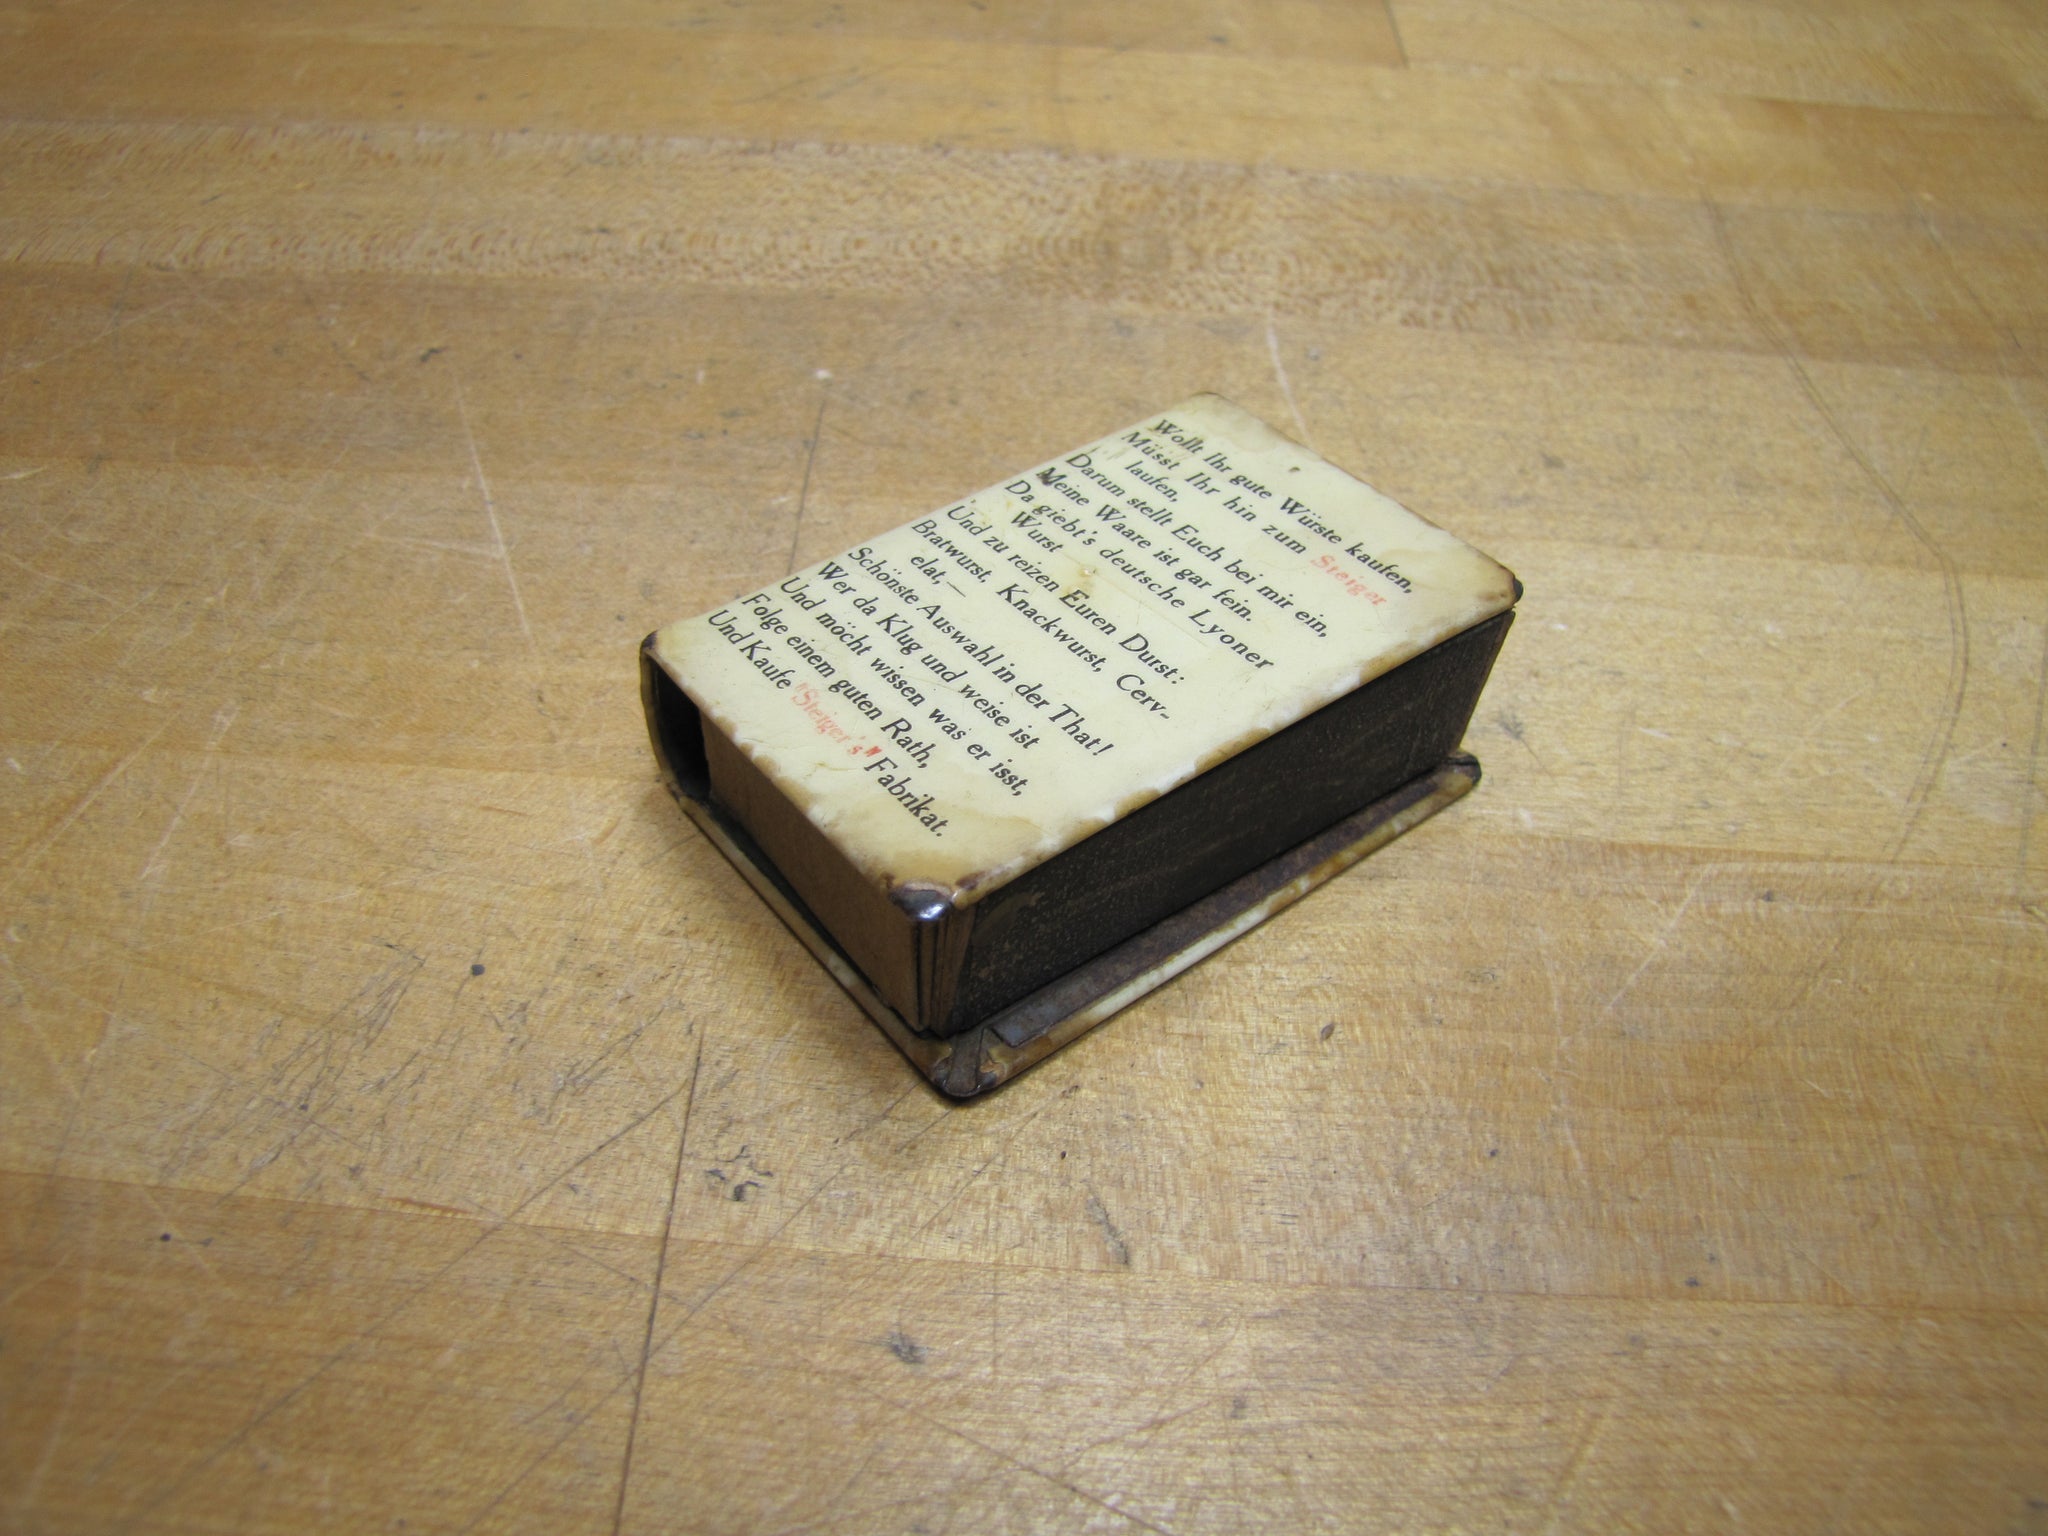 Wollt Ihr gute Würste kaufen,
Müsst Ihr hin zum Steiger
laufen,
Darum stellt Euch bei mir ein,
Meine Waare ist gar fein.
Da giebt's deutsche Lyoner
Wurst
Und zu reizen Euren Durst:
Bratwurst, Knackwurst, Cerv-
elat,—
Schönste Auswahl in der That!
Wer da Klug und weise ist
Und möcht wissen was er isst,
Folge einem guten Rath,
Und Kaufe "Steiger's" Fabrikat.